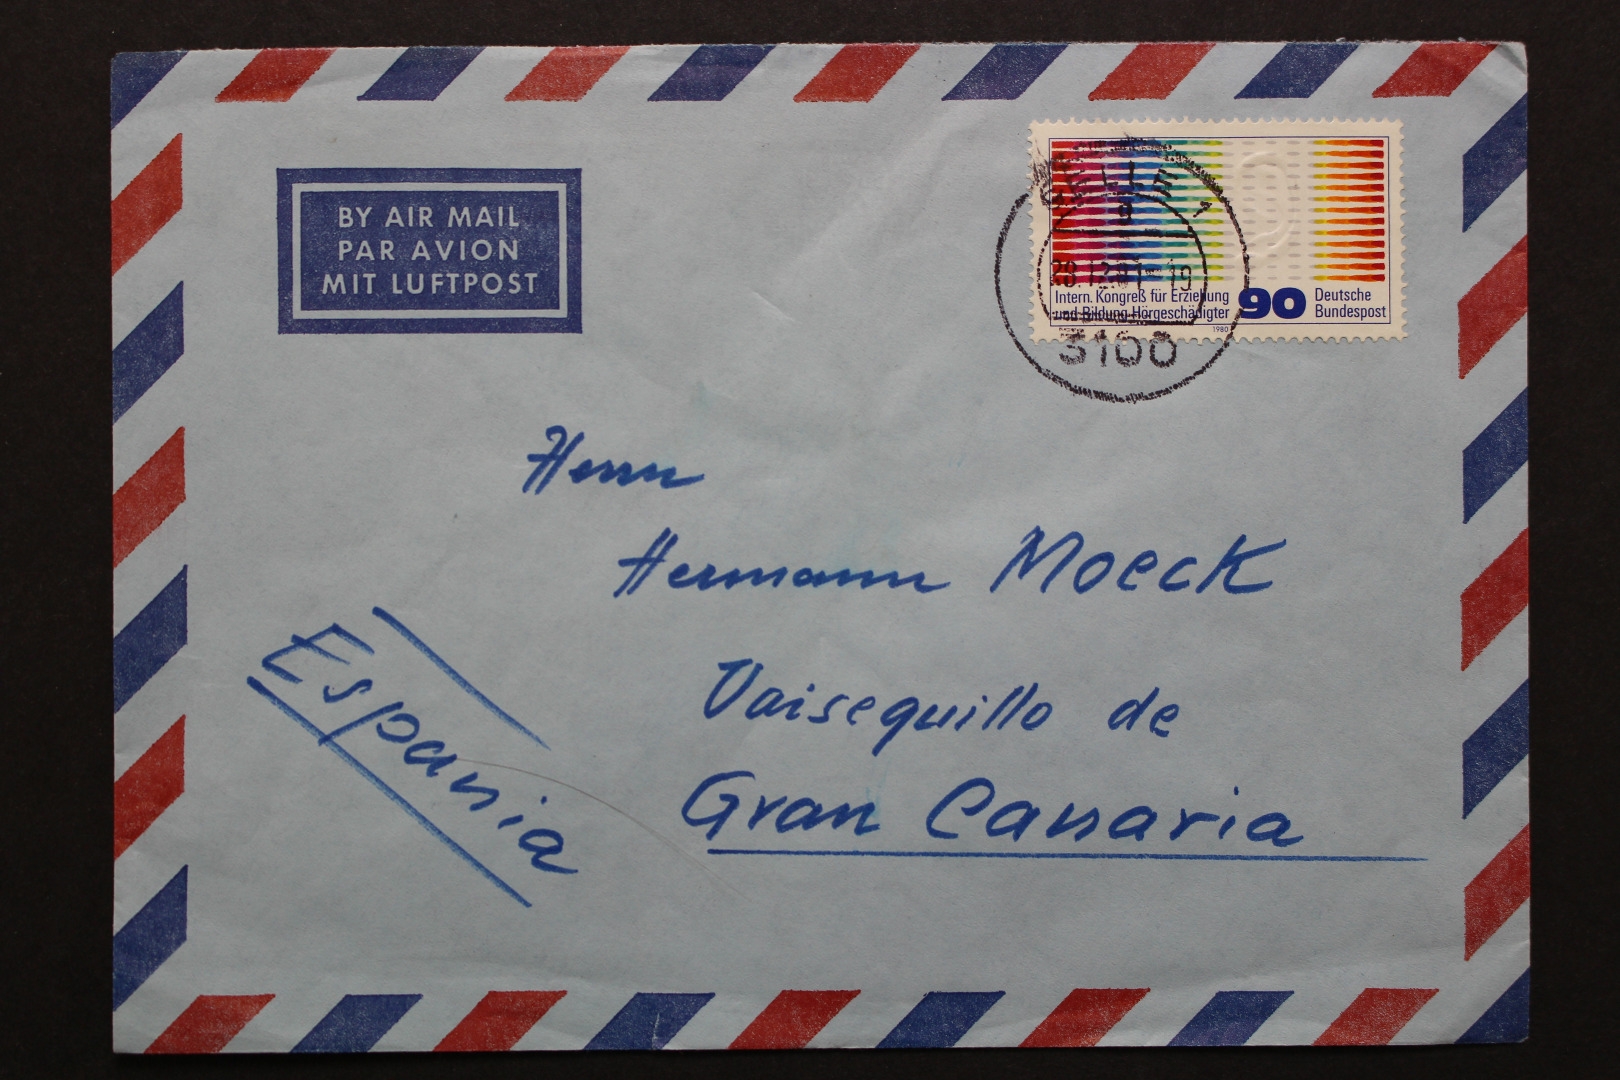 BY AIR MAIL
PAR AVION
MIT LUFTPOST
Intern. Kongreß für Erziehung
und Bildung Hörgeschädigter
1980
90
Deutsche
Bundespost
CELLE 1
3100
Herrn
Hermann Moeck
Vaisequillo de
Gran Canaria
Espania